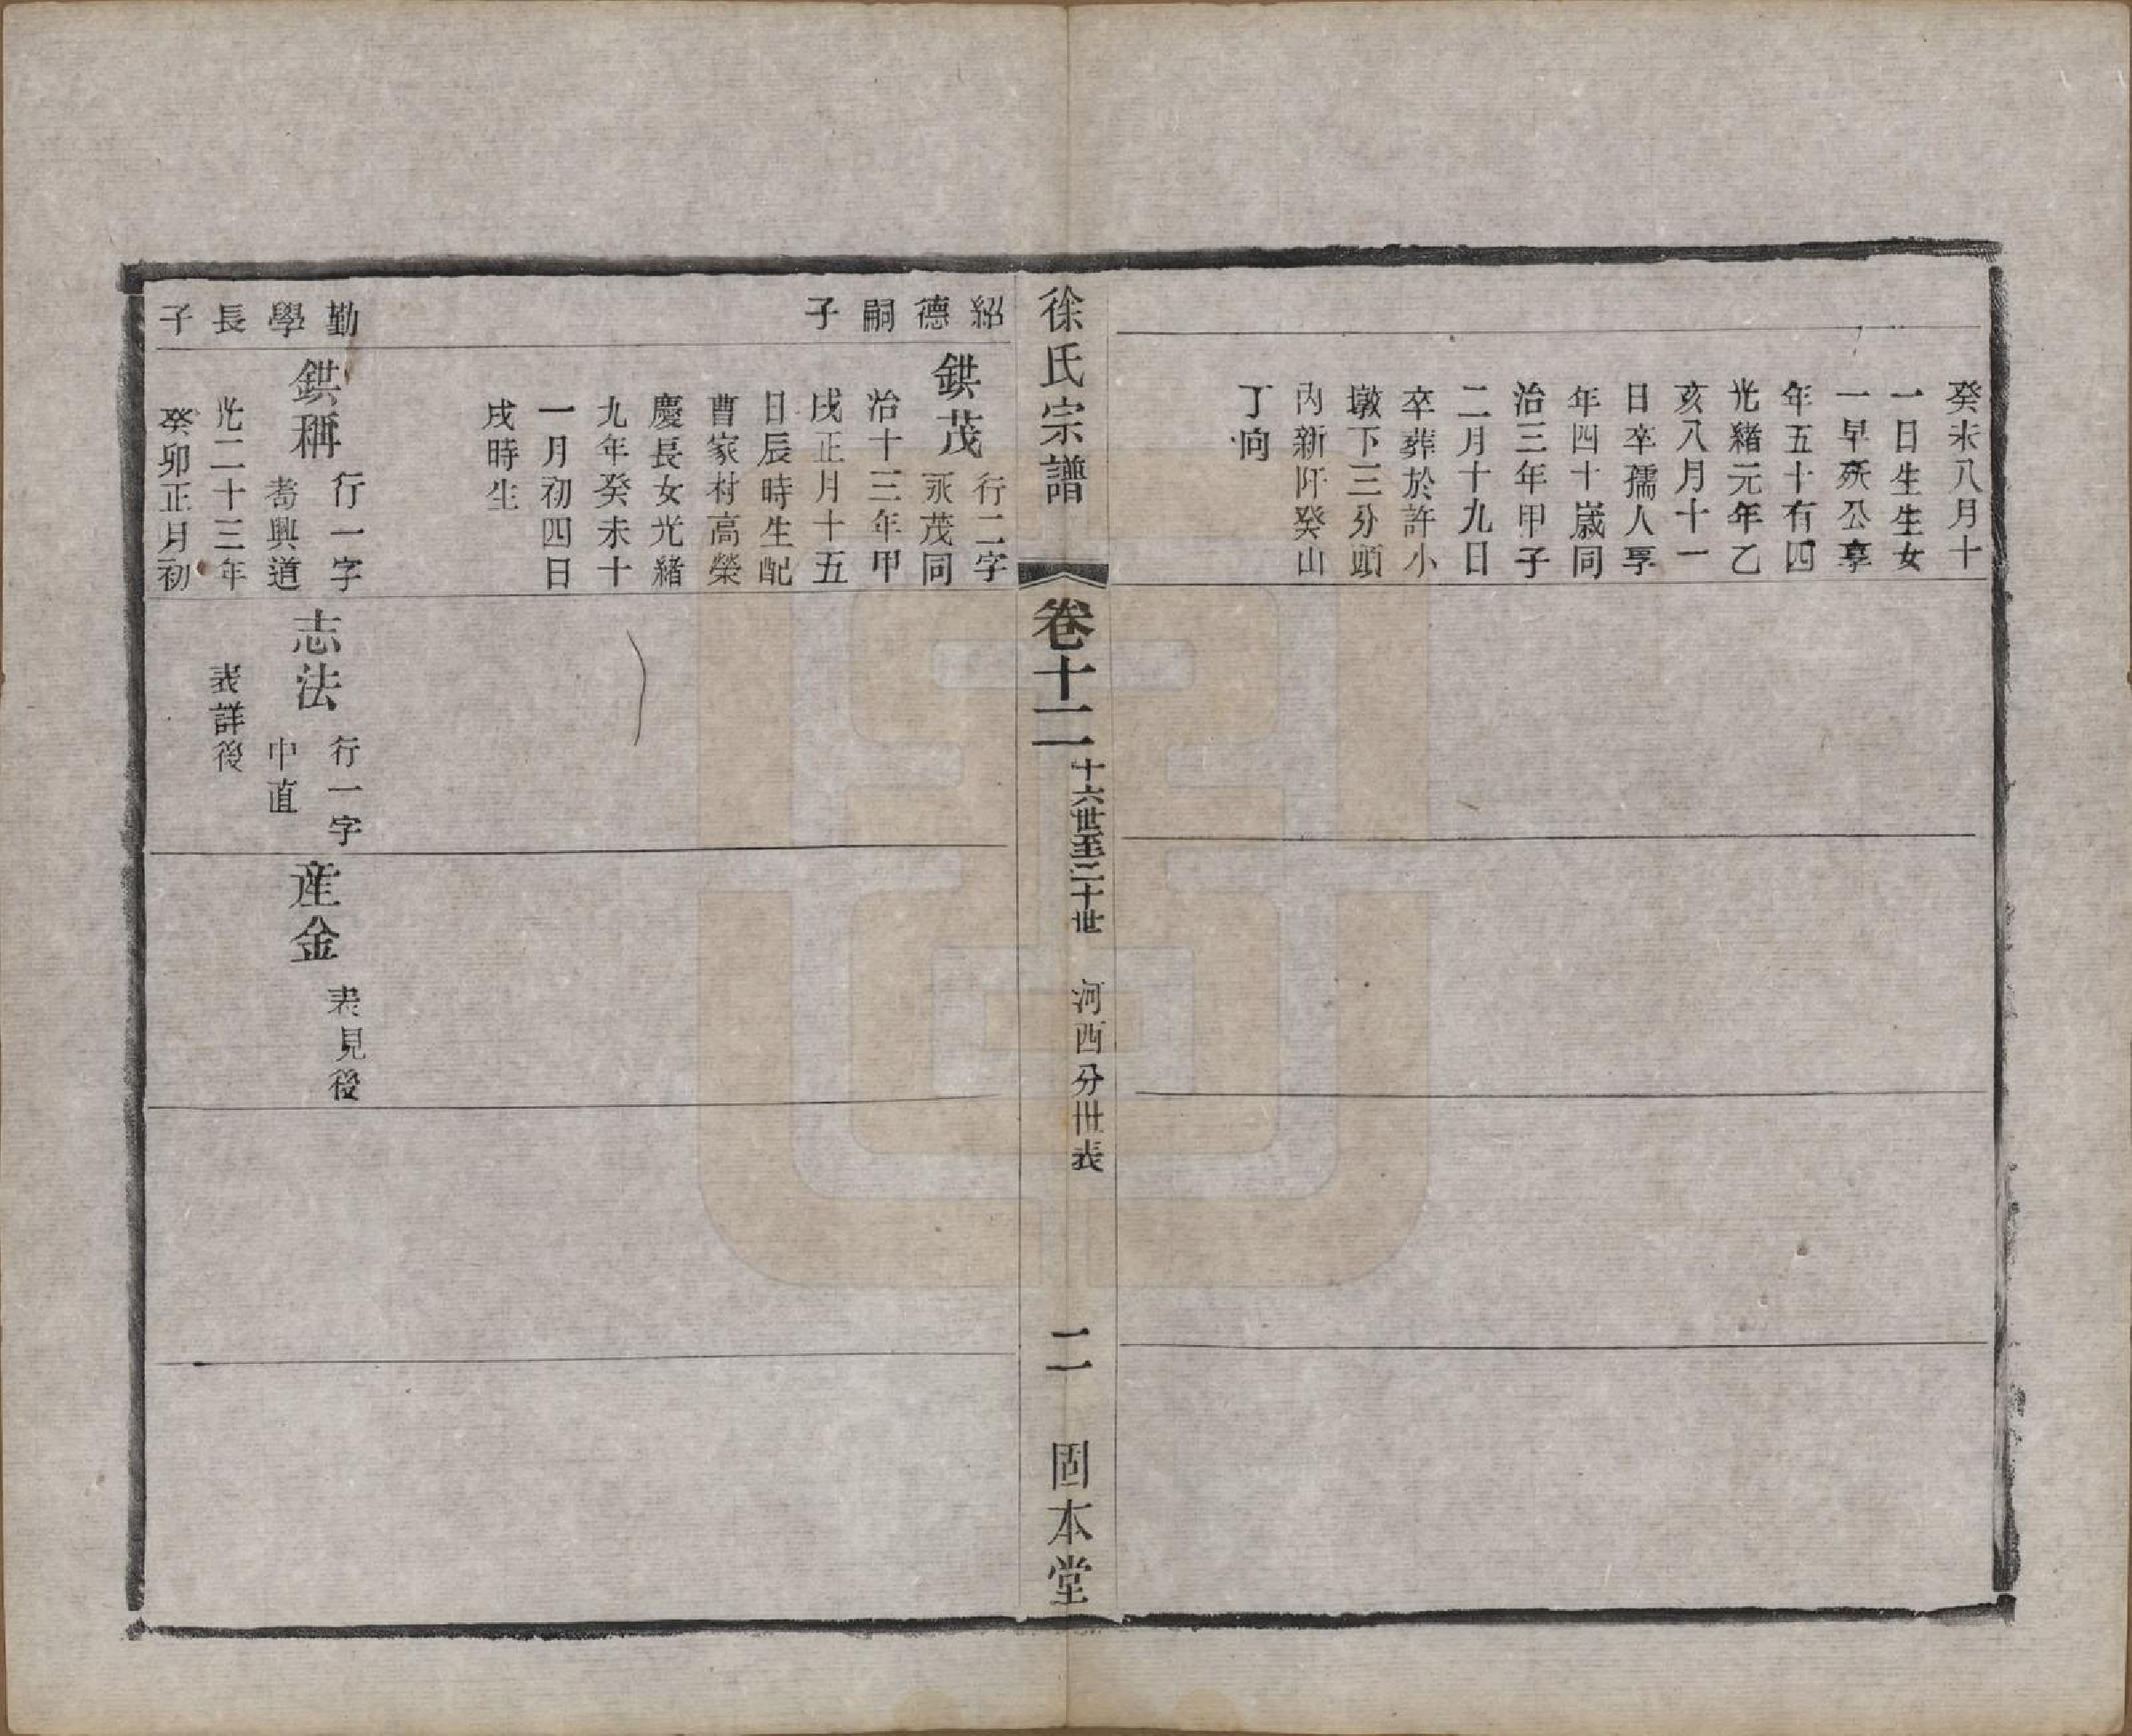 癸未八月十
一日生生女
一早殀公享
年五十有四
光緒元年乙
亥八月十一
日卒孺人享
年四十歲同
治三年甲子
二月十九日
卒葬於許小
墩下三分頭
內新阡癸山
丁向
徐氏宗譜
卷十二
十六世至二十世
河西分世表
二
固本堂
紹
德
嗣
子
鉷茂
行二字
永茂同
治十三年甲
戌正月十五
日辰時生配
曹家村高榮
慶長女光緒
九年癸未十
一月初四日
戌時生
勤
學
長
子
鉷稱
行一字
耇興道
光二十三年
癸卯正月初
志法
行一字
中直
表詳後
産金
表見後